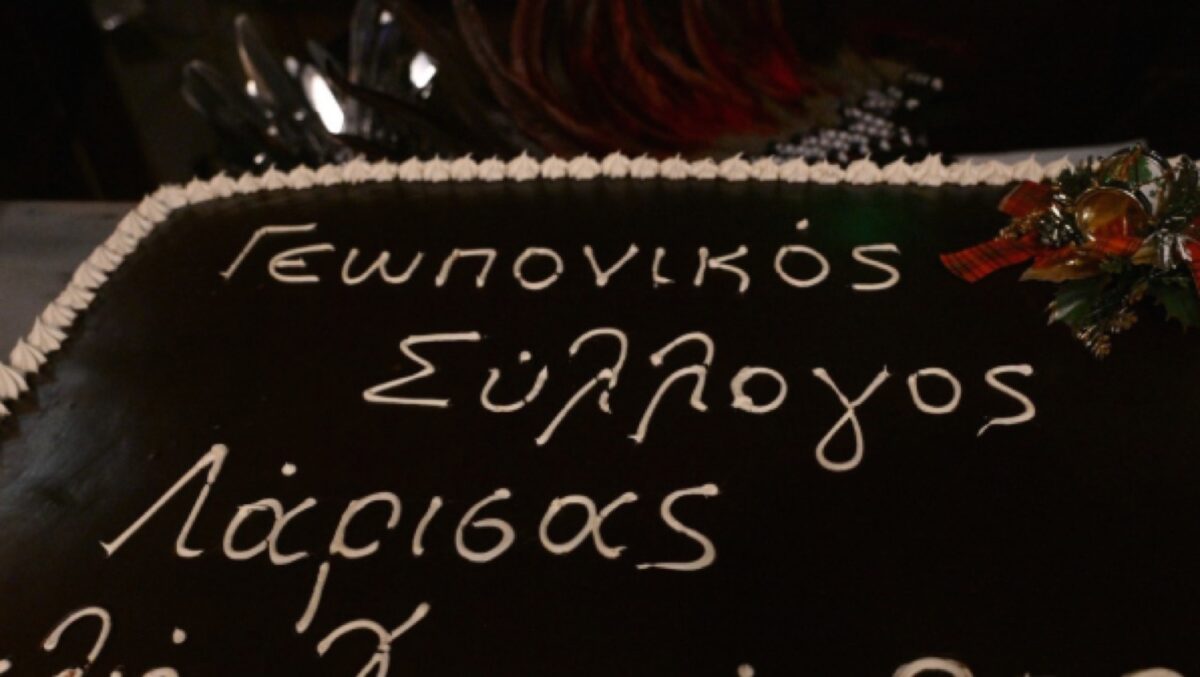 Γεωπονικός
Σύλλογος
Λάρισας